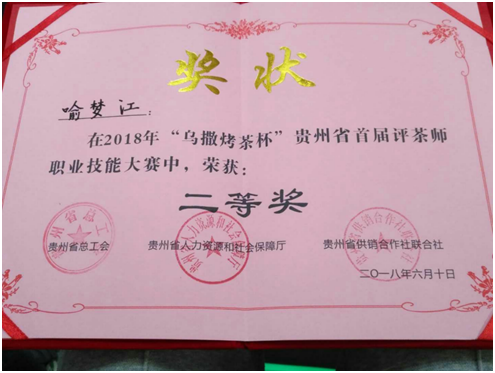 奖状
喻梦江：
在2018年“乌撒烤茶杯”贵州省首届评茶师
职业技能大赛中，荣获：
二等奖
贵州省总工会 贵州省人力资源和社会保障厅 贵州省供销合作社联合社
二〇一八年六月十日